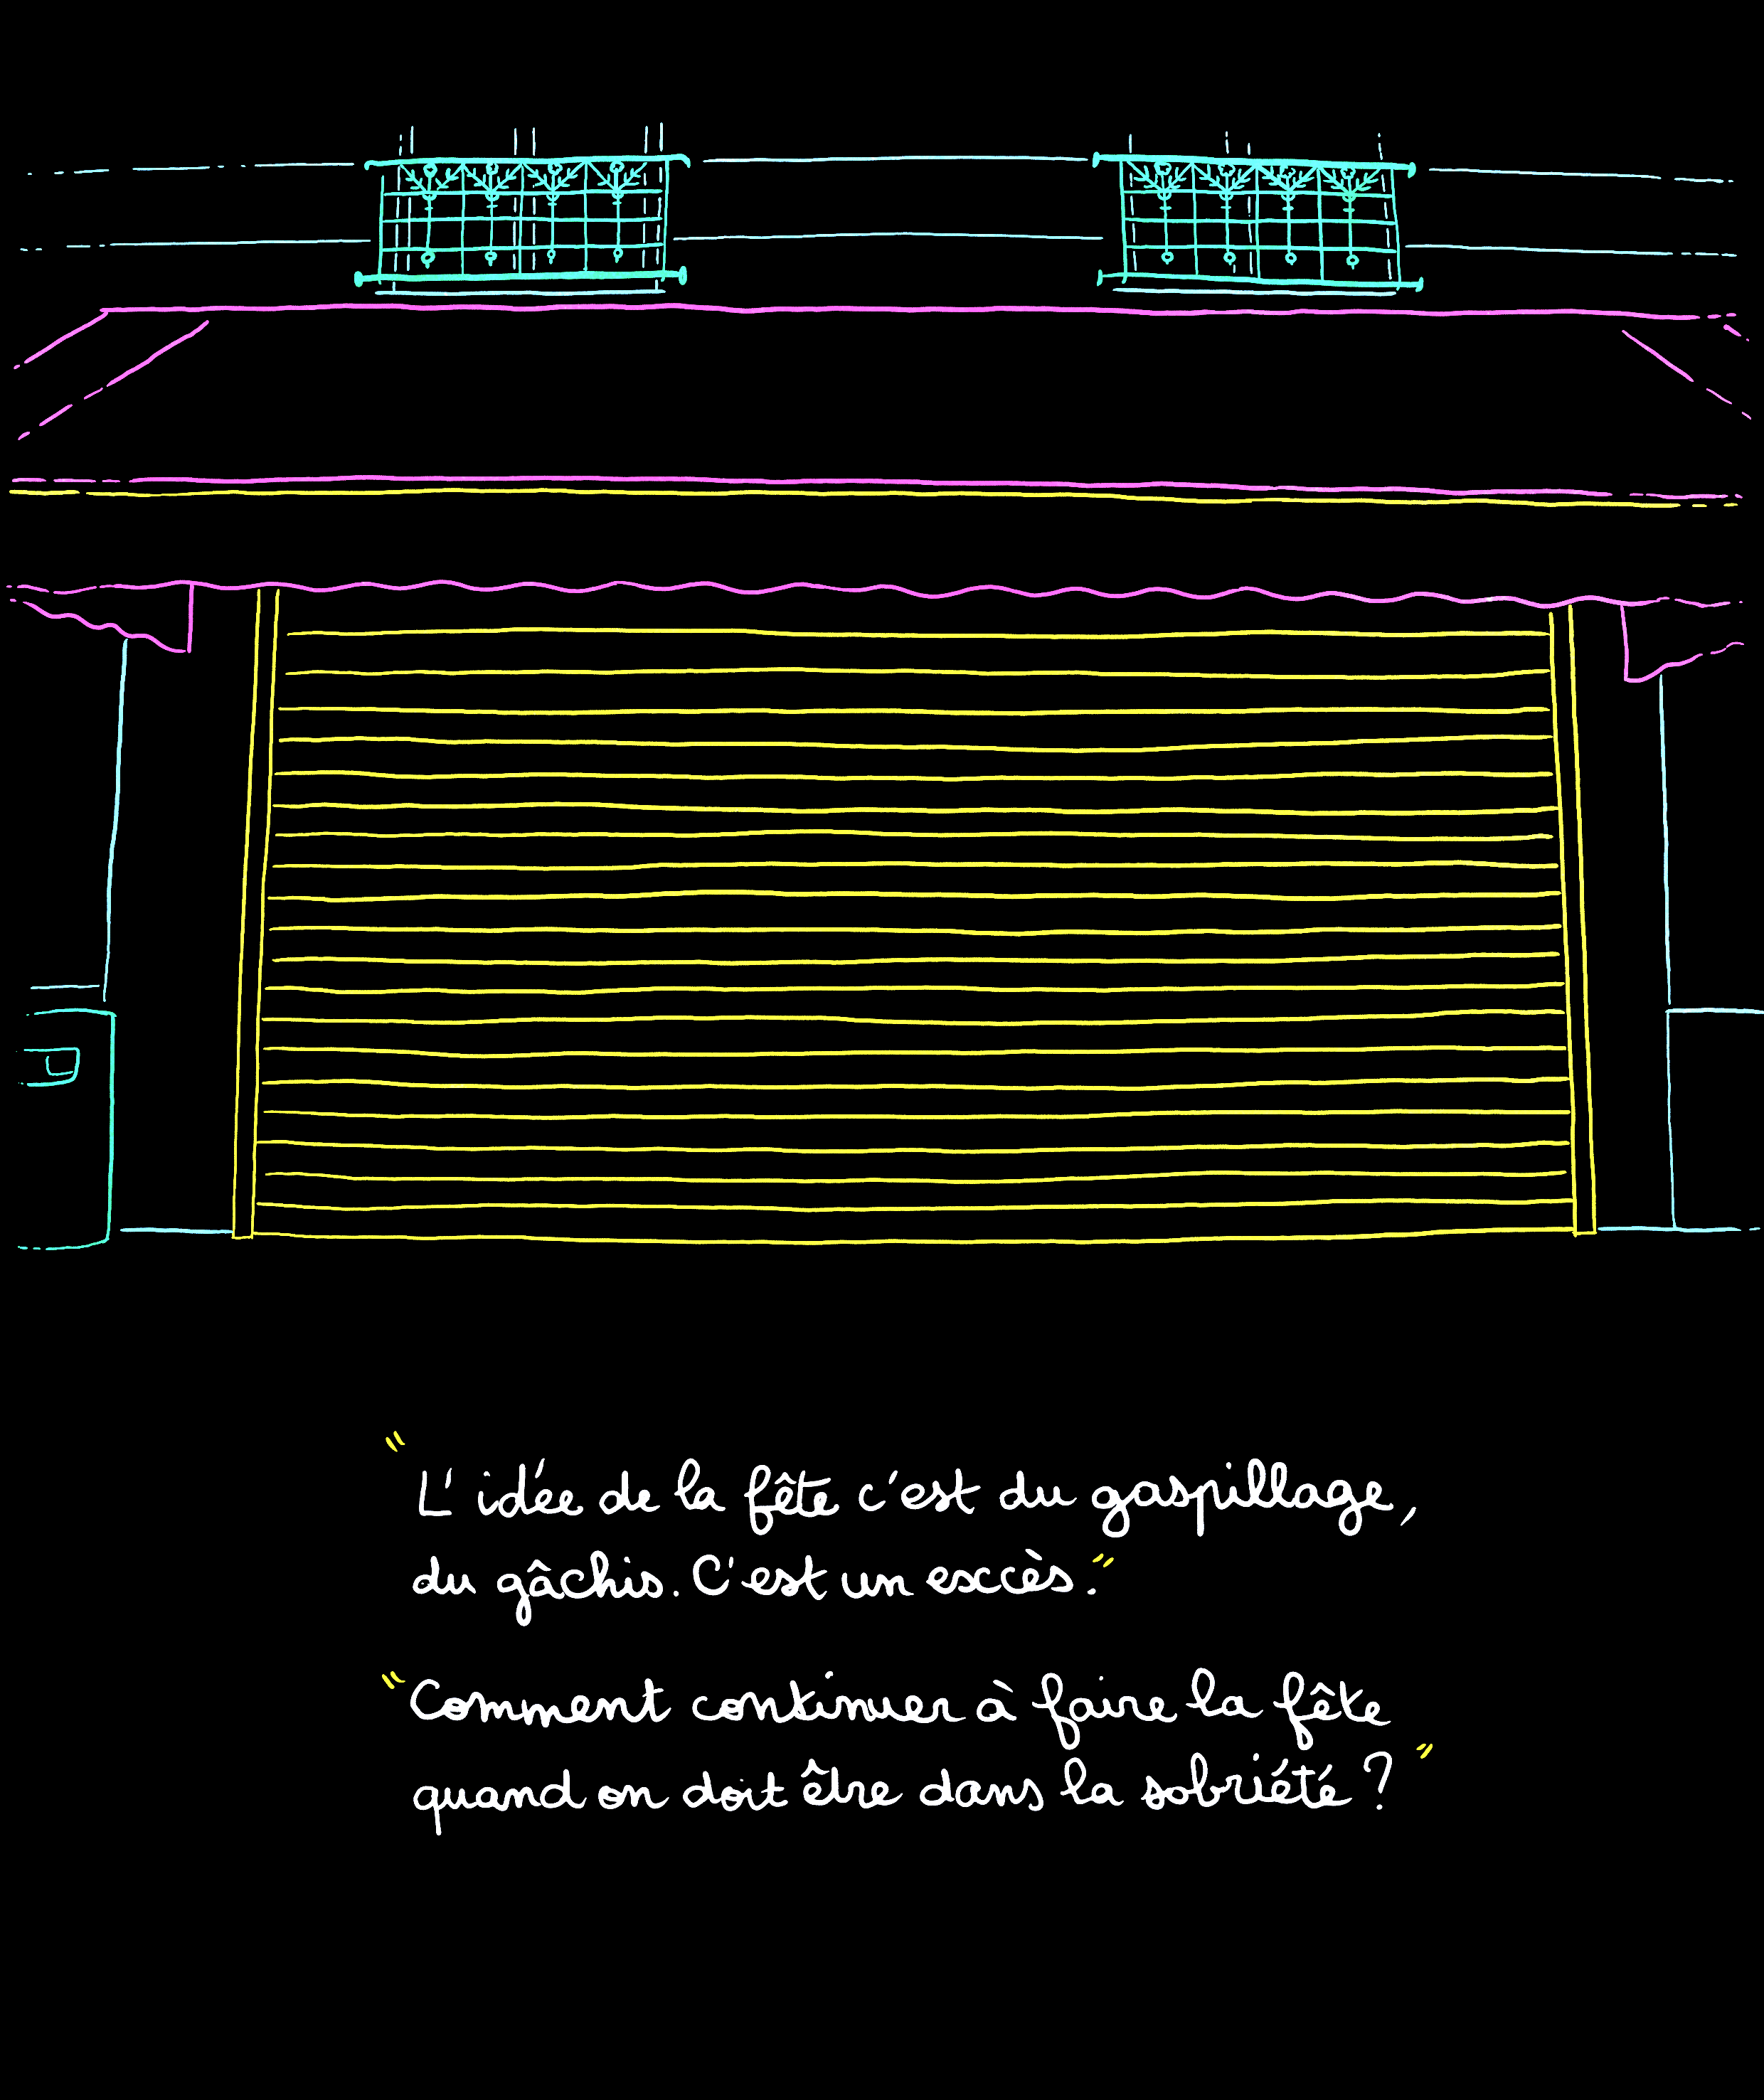 "L'idée de la fête c'est du gaspillage,
du gâchis. C'est un excès."
"Comment continuer à faire la fête
quand on doit être dans la sobriété ?"